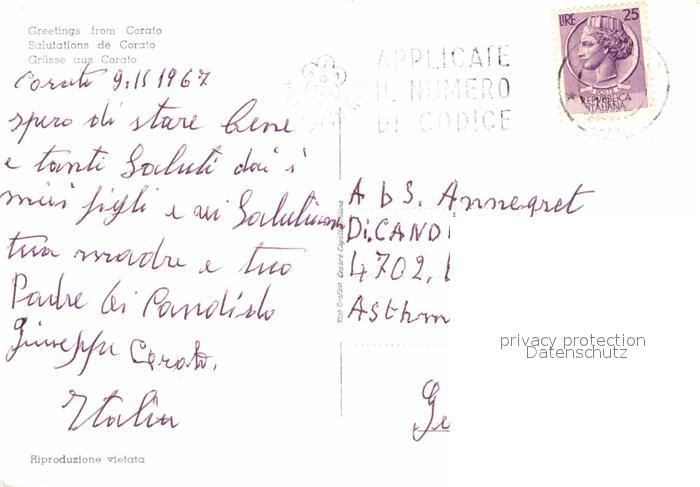 Greetings from Corato
Salutations de Corato
Grüsse aus Corato
Corato 9.11 1967
spero di stare bene
e tanti Saluti dai i
miei figli e mi Saluti
tua madre e tuo
Padre Candido
Giuseppe Corato,
Italia
Riproduzione vietata
APPLICATE
IL NUMERO
DI CODICE
LIRE 25
POSTE
REPVBBLICA
ITALIANA
A b S. Annegret
Di CANDI
4702,
Asthm
Ge
privacy protection
Datenschutz